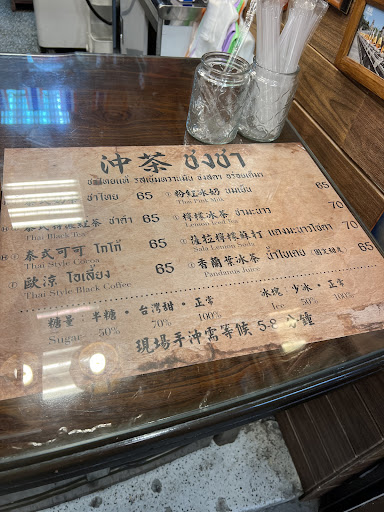 沖茶 ชงชา
ชาไทย 65
Thai Black Tea
泰式可可 โกโก้ 65
Thai Style Cocoa
歐涼 โอเลี้ยง 65
Thai Style Black Coffee
粉紅冰奶 นมเย็น 65
Thai Pink Milk
檸檬冰茶 ชามะนาว 70
Lemon Iced Tea
薩拉檸檬蘇打 แดงมะนาวโซดา 70
Sala Lemon Soda
香蘭葉冰茶 น้ำใบเตย 65
Pandanus Juice
糖量 · 半糖 · 台灣甜 · 正常
Sugar 50% 70% 100%
冰塊 · 少冰 · 正常
Ice 50% 100%
現場手沖需等候 5-8 分鐘